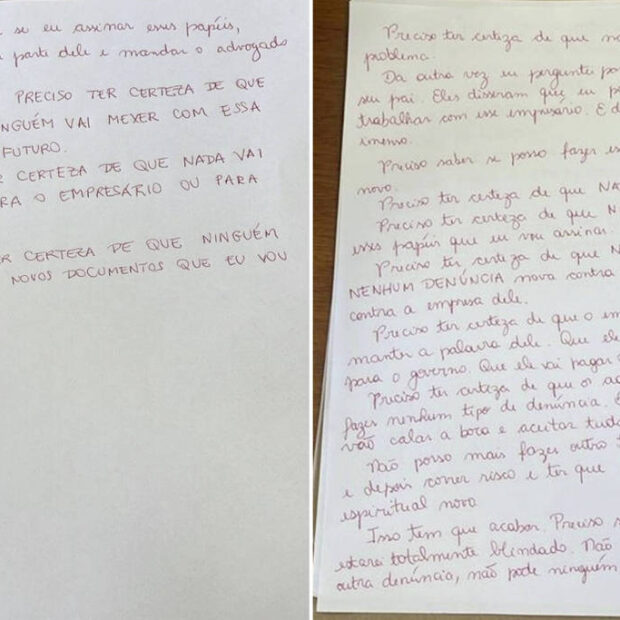 se eu assinar esses papéis,
parte dele e mandar o advogado
PRECISO TER CERTEZA DE QUE
NGUÉM VAI MEXER COM ESSA
FUTURO.
CERTEZA DE QUE NADA VAI
RA O EMPRESÁRIO OU PARA
ER CERTEZA DE QUE NINGUÉM
NOVOS DOCUMENTOS QUE EU VOU
Preciso ter certeza de que
problema.
Da outra vez eu perguntei
seu pai. Eles disseram que eu
trabalhar com esse empresário. E
imenso.
Preciso saber se posso fazer
novo.
Preciso ter certeza de que NA
Preciso ter certeza de que N
esses papéis que eu vou assinar.
Preciso ter certeza de que N
NENHUM DENÚNCIA nova contra
contra a empresa dele.
Preciso ter certeza de que o em
manter a palavra dele. Que ele
para o governo. Que ele vai pagar
Preciso ter certeza de que os
fazer nenhum tipo de denúncia.
vão calar a boca e aceitar tudo
Não posso mais fazer outro
e depois correr risco e ter que
espiritual novo.
Isso tem que acabar. Preciso
estarei totalmente blindado. Não
outra denúncia, não pode ninguém